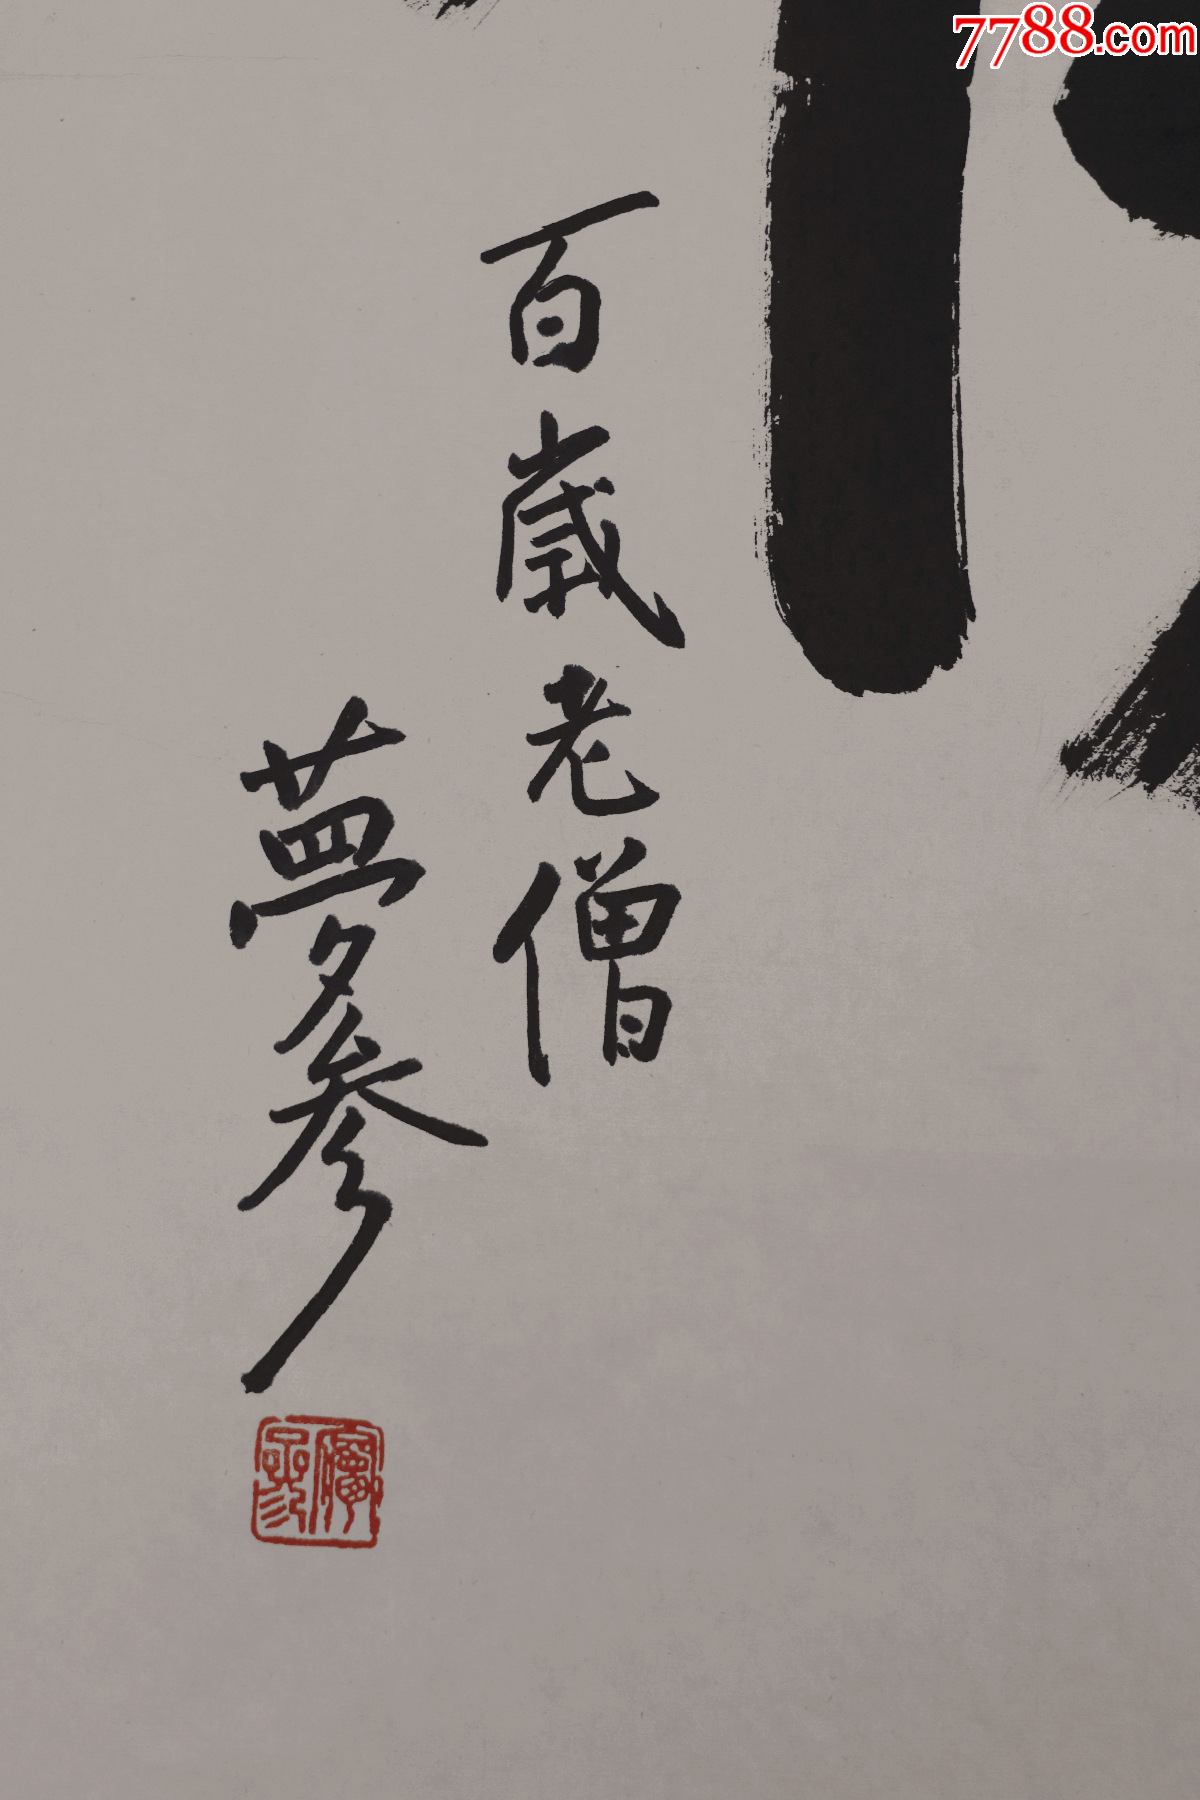 7788.com
百歲老僧
夢參
夢參